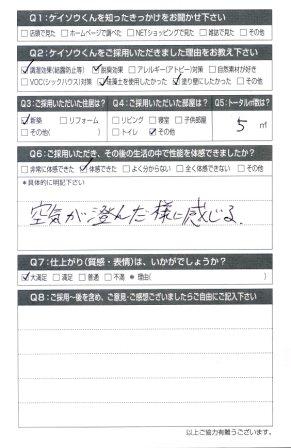 Q1:ケイソウくんを知ったきっかけをお聞かせ下さい
□店頭で見た □ホームページで調べた □NETショッピングで見た □雑誌で見た □その他
Q2:ケイソウくんをご採用いただきました理由をお教え下さい
☑調湿効果(結露防止等) ☑脱臭効果 □アレルギー(アトピー)対策 □自然素材が好き
□VOC(シックハウス)対策 ☑珪藻土を使用したかった ☑塗り壁にしたかった □その他
Q3:ご採用いただいた住居は? Q4:ご採用いただいた部屋は? Q5:トータル㎡数は?
☑新築 □リフォーム □リビング □寝室 □子供部屋 5 ㎡
□その他( ) □トイレ ☑その他
Q6:ご採用いただき、その後の生活の中で性能を体感できましたか?
□非常に体感できた ☑体感できた □よく分からない □全く体感できない □その他
*具体的に明記下さい
空気が澄んだ様に感じる。
Q7:仕上がり(質感・表情)は、いかがでしょうか?
☑大満足 □満足 □普通 □不満 ● 理由( )
Q8:ご採用~後を含め、ご意見・ご感想ございましたらご自由にご記入下さい
以上ご協力有難うございます。